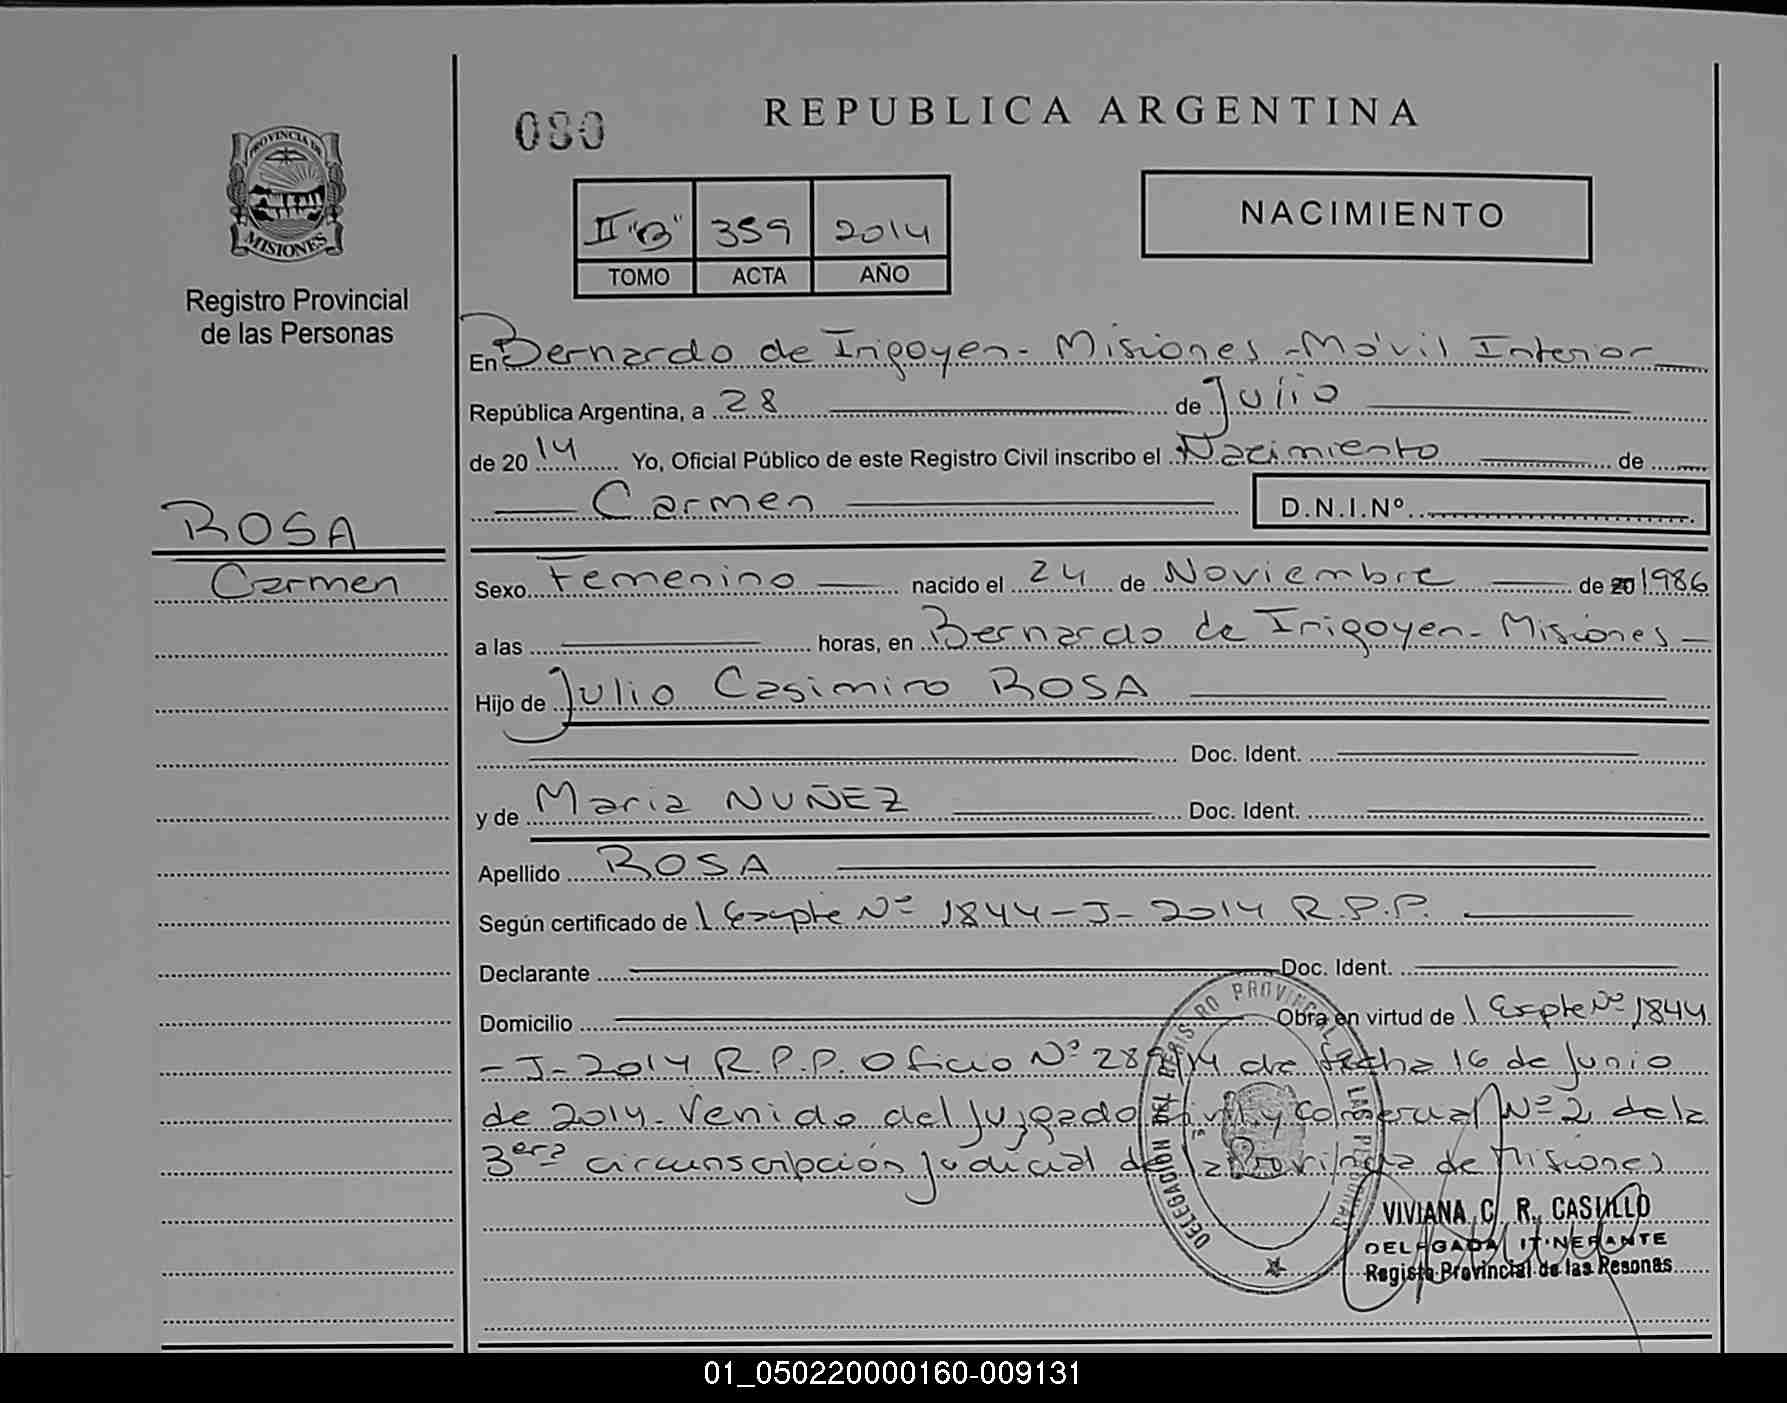 080
REPUBLICA ARGENTINA
PROVINCIA DE
MISIONES
Registro Provincial
de las Personas
II "B" 359 2014
TOMO ACTA AÑO
NACIMIENTO
En Bernardo de Irigoyen - Misiones - Móvil Interior
República Argentina, a 28 de Julio
de 2014 Yo, Oficial Público de este Registro Civil inscribo el Nacimiento de
Carmen D.N.I.Nº
ROSA
Carmen
Sexo Femenino nacido el 24 de Noviembre de 20 1986
a las horas, en Bernardo de Irigoyen - Misiones -
Hijo de Julio Casimiro ROSA
Doc. Ident.
y de Maria NUÑEZ Doc. Ident.
Apellido ROSA
Según certificado de 1 Expte Nº 1844-J-2014 R.P.P.
Declarante Doc. Ident.
Domicilio Obra en virtud de 1 Expte Nº 1844
-J-2014 R.P.P. Oficio Nº de fecha 16 de Junio
de 2014. Venido del Juzgado Civil y Comercial Nº 2 de la
3era circunscripción judicial de la Provincia de Misiones
DELEGACION DEL REGISTRO PROVINCIAL DE LAS PERSONAS
VIVIANA C. R. CASILLO
DELEGADA ITINERANTE
Registro Provincial de las Pesonas
01_050220000160-009131